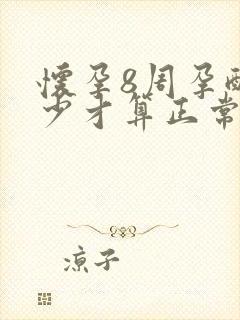 懷孕8周孕酮
少才算正常
凉子